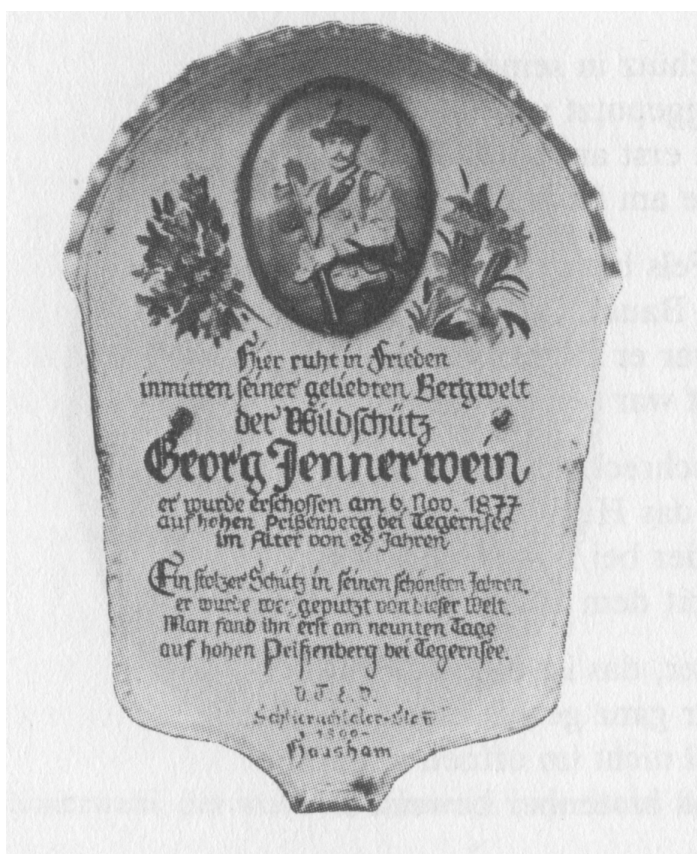 Hier ruht in Frieden
inmitten seiner geliebten Bergwelt
der Wildschütz
Georg Jennerwein
er wurde erschossen am 6. Nov. 1877
auf hohen Peißenberg bei Tegernsee
im Alter von 29 Jahren
Ein stolzer Schütz in seinen schönsten Jahren.
er wurde weg geputzt von dieser Welt.
Man fand ihn erst am neunten Tage
auf hohen Peißenberg bei Tegernsee.
Hausham